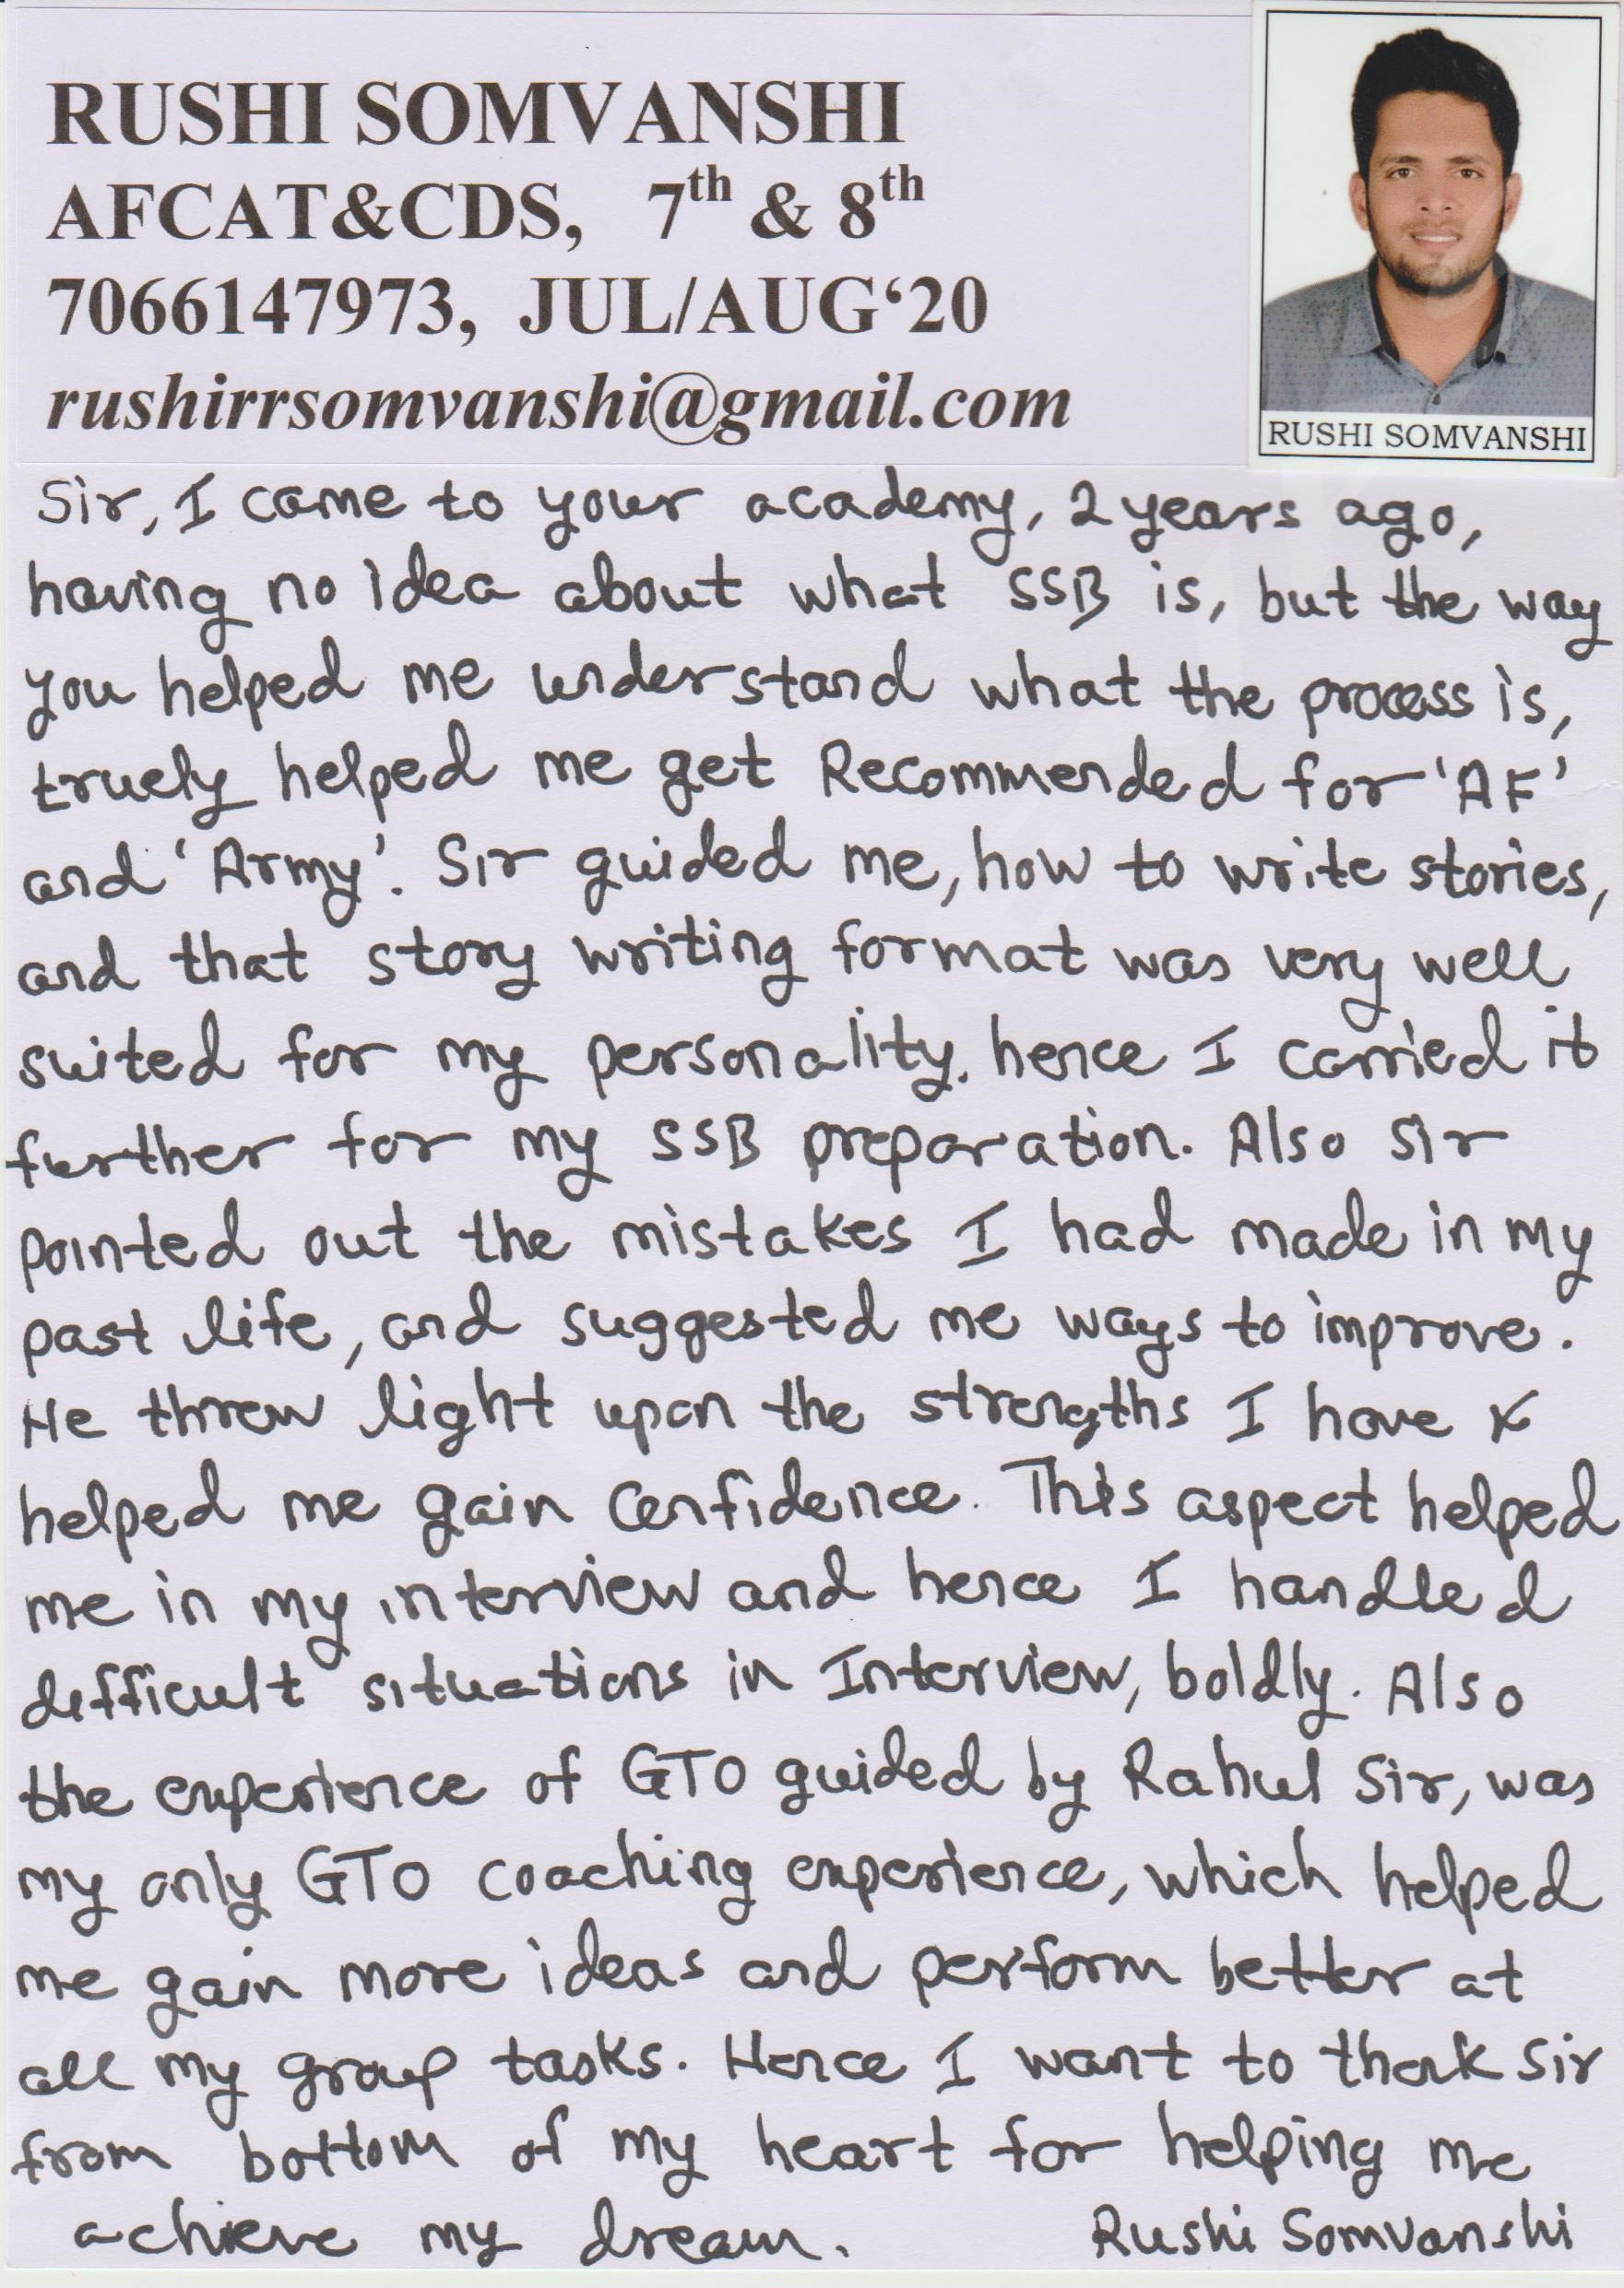 RUSHI SOMVANSHI
AFCAT&CDS, 7th & 8th
7066147973, JUL/AUG‘20
rushirrsomvanshi@gmail.com
RUSHI SOMVANSHI
Sir, I came to your academy, 2 years ago,
having no idea about what SSB is, but the way
you helped me understand what the process is,
truely helped me get Recommended for 'AF'
and 'Army'. Sir guided me, how to write stories,
and that story writing format was very well
suited for my personality. hence I carried it
further for my SSB preparation. Also Sir
pointed out the mistakes I had made in my
past life, and suggested me ways to improve.
He threw light upon the strengths I have &
helped me gain Confidence. This aspect helped
me in my interview and hence I handled
difficult situations in Interview, boldly. Also
the experience of GTO guided by Rahul Sir, was
my only GTO coaching experience, which helped
me gain more ideas and perform better at
all my group tasks. Hence I want to thank Sir
from bottom of my heart for helping me
achieve my dream. Rushi Somvanshi